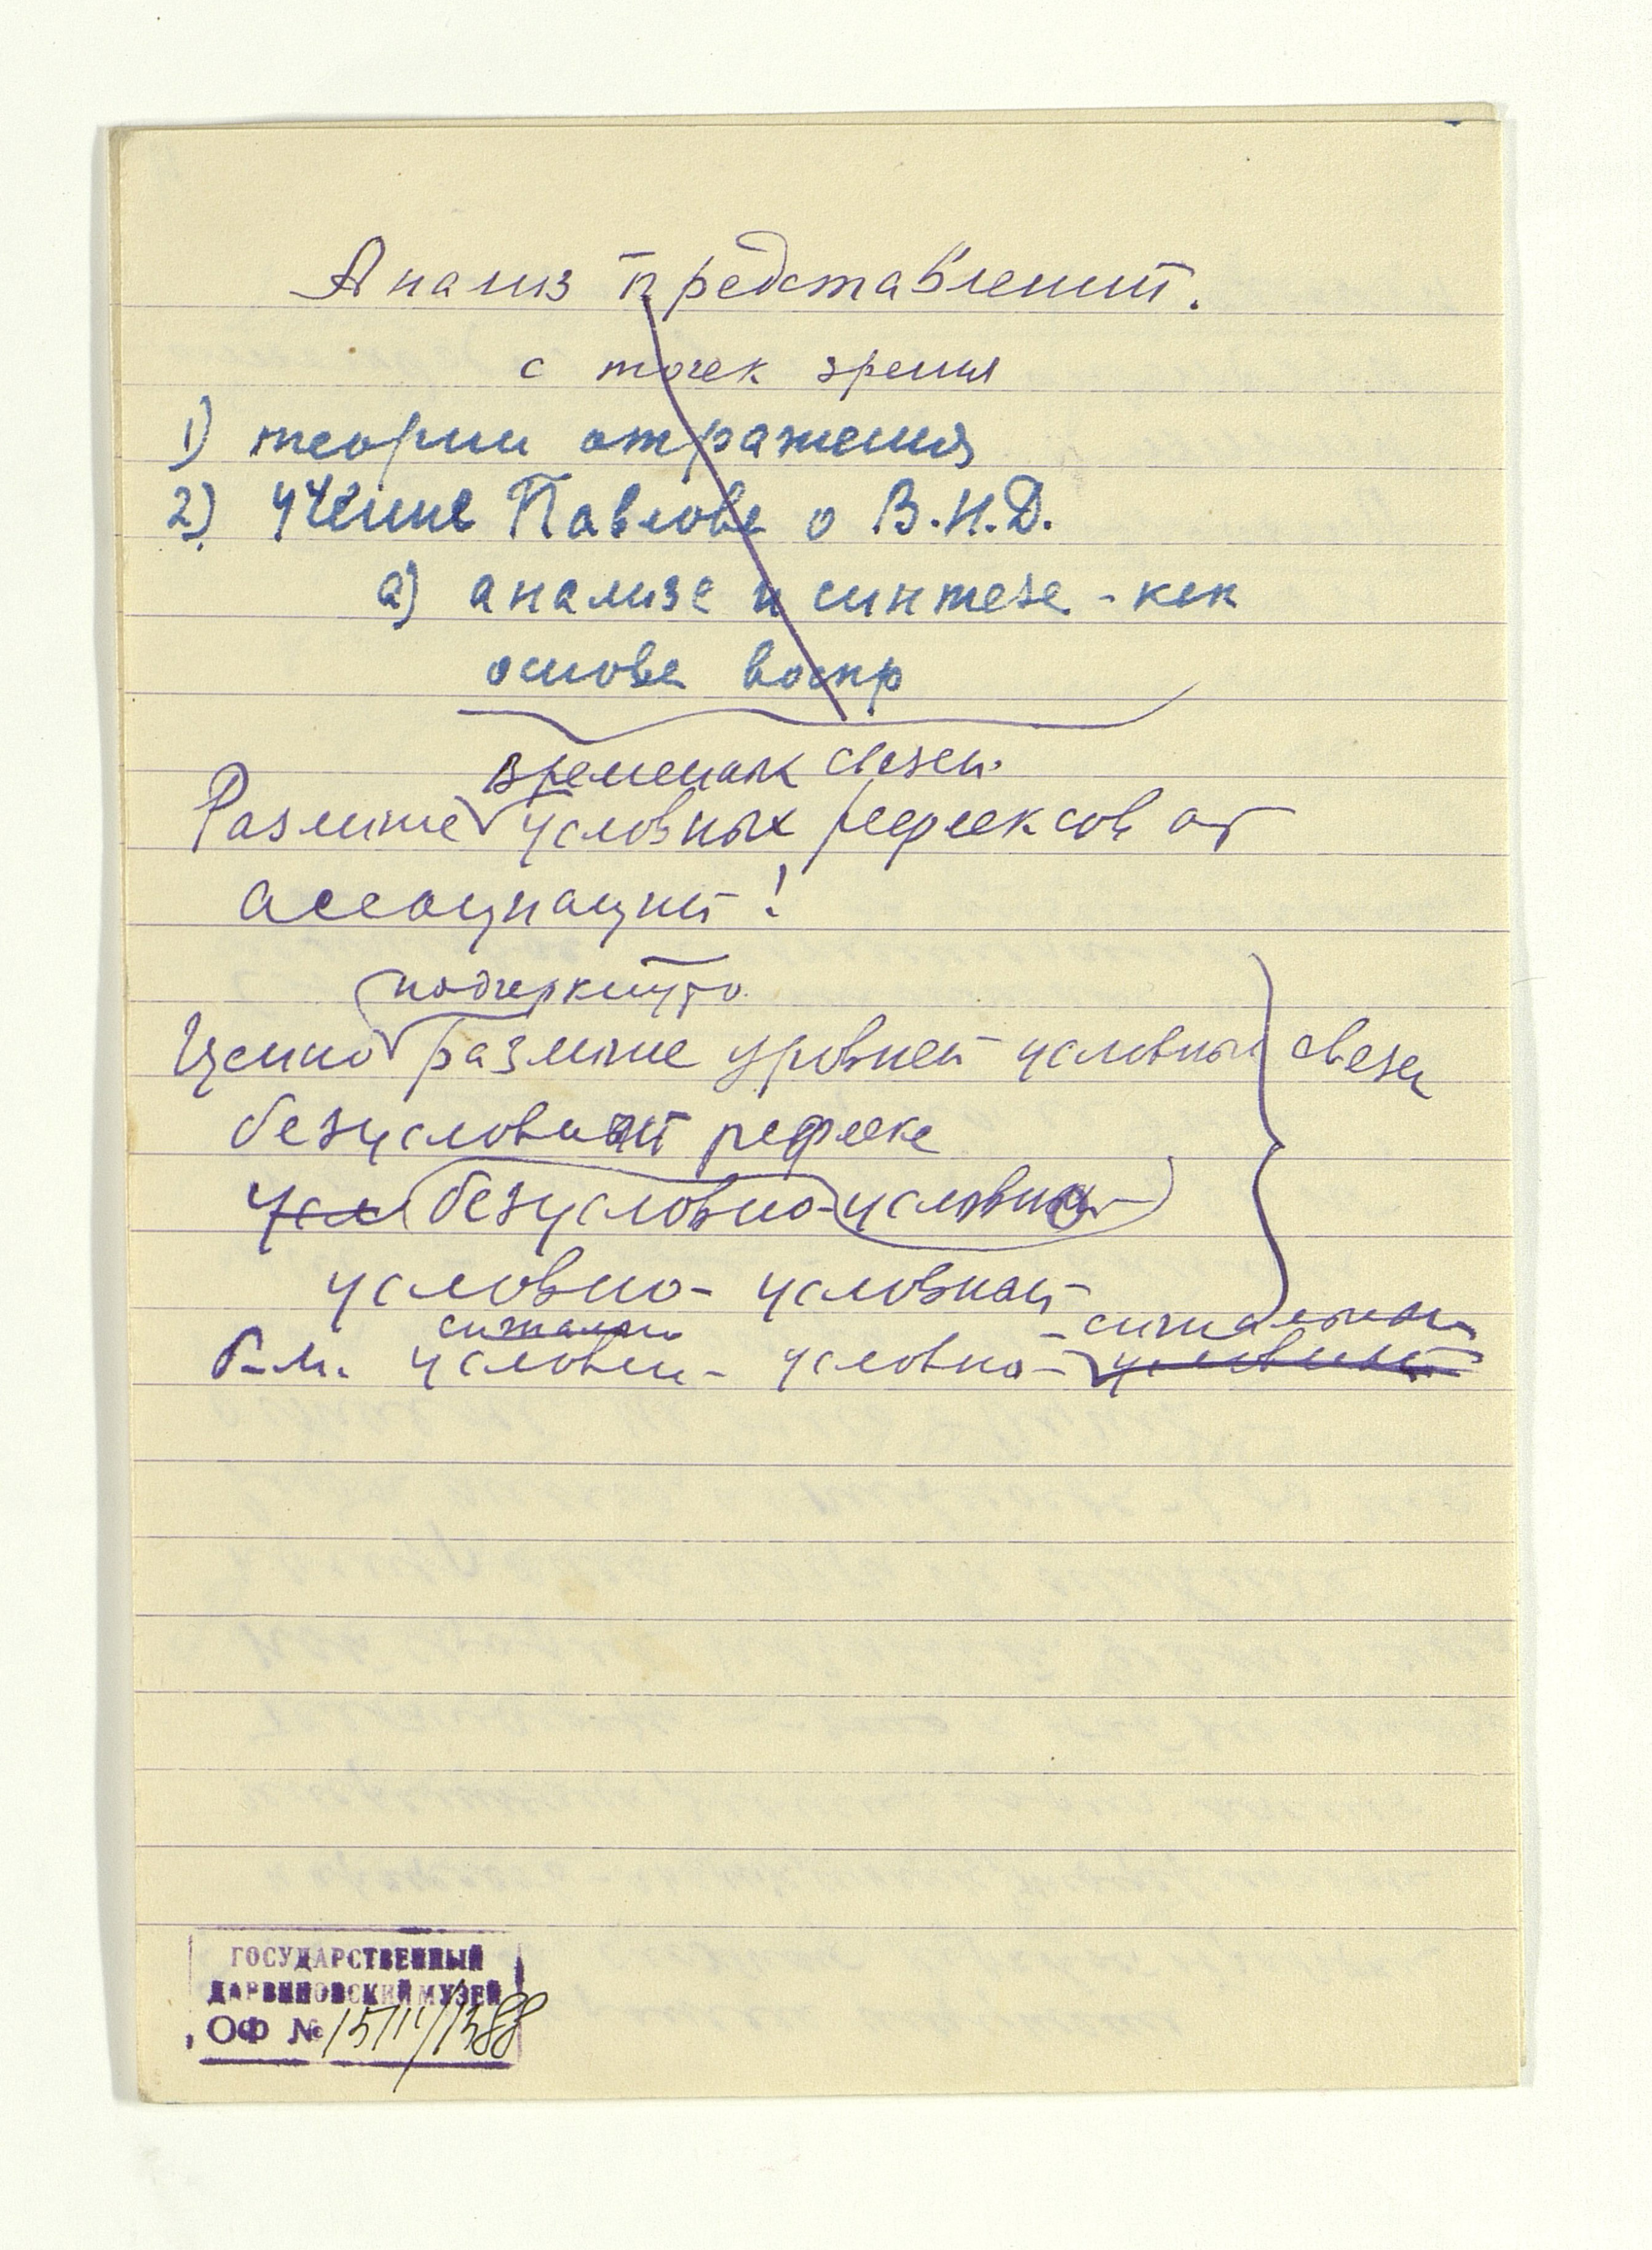 Анализ представлений.
с точек зрения
1) теории отражения
2) учение Павлова о В.Н.Д.
а) анализе и синтезе - как
основе воспр
временных связей
Различие условных рефлексов от
ассоциаций!
подчеркнуто
Ценно различие уровней условных связей
безусловный рефлекс
усл безусловно-условный
условно- условной
сигнально -сигнальной
б.м. условно- условно- условный
ГОСУДАРСТВЕННЫЙ
ДАРВИНОВСКИЙ МУЗЕЙ
ОФ №